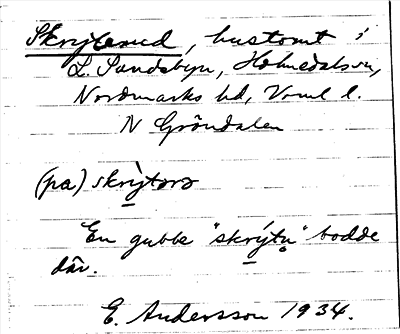 Skrytesud, hustomt i
L. Sandsbyn, Holmedals sn,
Nordmarks hd, Vrml l.
N Gröndalen
(pa) skrýtərə
En gubbe "skrýtn̥" bodde
där.
E. Andersson 1934.